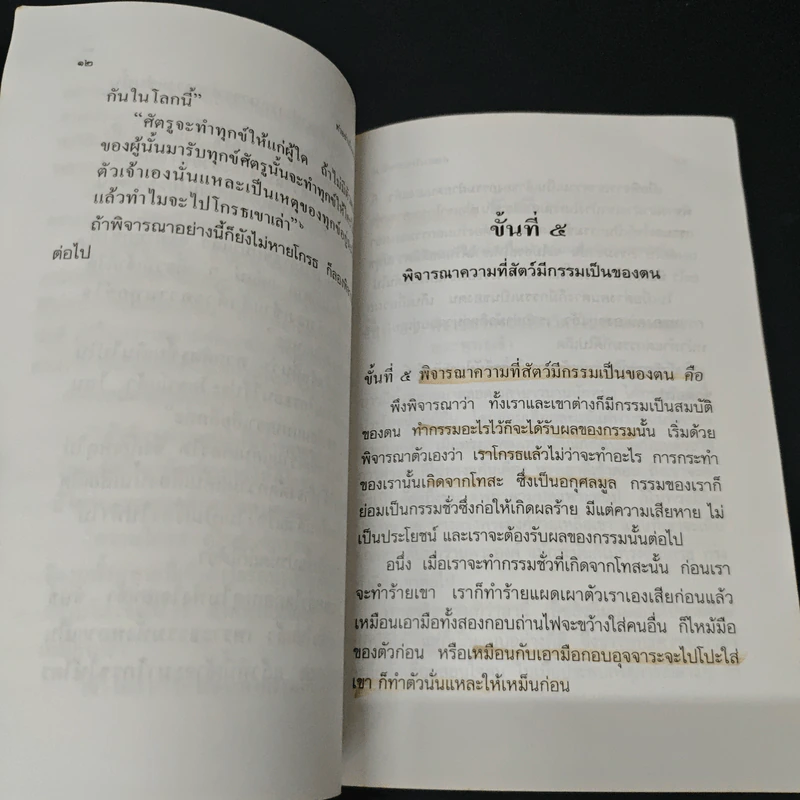 ๑๒
กันในโลกนี้”
“ศัตรูจะทำทุกข์ให้แก่ผู้ใด ถ้าไม่มี
ของผู้นั้นมารับทุกข์ศัตรูนั้นจะทำทุกข์ให้
ตัวเจ้าเองนั่นแหละเป็นเหตุของทุกข์
แล้วทำไมจะไปโกรธเขาเล่า”๖
ถ้าพิจารณาอย่างนี้ก็ยังไม่หายโกรธ ก็ลอง
ต่อไป
ขั้นที่ ๕
พิจารณาความที่สัตว์มีกรรมเป็นของตน
ขั้นที่ ๕ พิจารณาความที่สัตว์มีกรรมเป็นของตน คือ
พึงพิจารณาว่า ทั้งเราและเขาต่างก็มีกรรมเป็นสมบัติ
ของตน ทำกรรมอะไรไว้ก็จะได้รับผลของกรรมนั้น เริ่มด้วย
พิจารณาตัวเองว่า เราโกรธแล้วไม่ว่าจะทำอะไร การกระทำ
ของเรานั้นเกิดจากโทสะ ซึ่งเป็นอกุศลมูล กรรมของเราก็
ย่อมเป็นกรรมชั่วซึ่งก่อให้เกิดผลร้าย มีแต่ความเสียหาย ไม่
เป็นประโยชน์ และเราจะต้องรับผลของกรรมนั้นต่อไป
อนึ่ง เมื่อเราจะทำกรรมชั่วที่เกิดจากโทสะนั้น ก่อนเรา
จะทำร้ายเขา เราก็ทำร้ายแผดเผาตัวเราเองเสียก่อนแล้ว
เหมือนเอามือทั้งสองกอบถ่านไฟจะขว้างใส่คนอื่น ก็ไหม้มือ
ของตัวก่อน หรือเหมือนกับเอามือกอบอุจจาระจะไปโปะใส่
เขา ก็ทำตัวนั่นแหละให้เหม็นก่อน